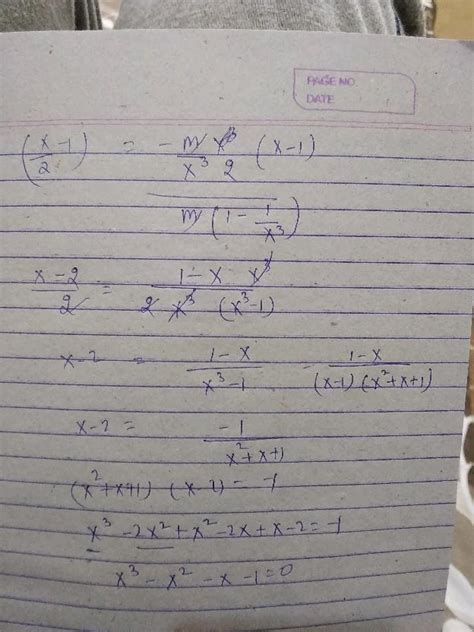 PAGE NO.
DATE
(x/2 - 1) = - m x³/x³ 2 (x-1)
m (1 - 1/x³)
x-2/2 = 1-x x³/2 x³ (x³-1)
x-2 = 1-x/x³-1 = 1-x/(x-1)(x²+x+1)
x-2 = -1/x²+x+1
(x²+x+1) (x-2) = -1
x³ - 2x² + x² - 2x + x - 2 = -1
x³ - x² - x - 1 = 0